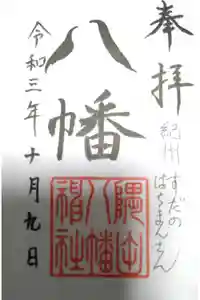 奉拝
紀州すだの
はちまんさん
八幡
隅田八幡神社
令和三年十月九日